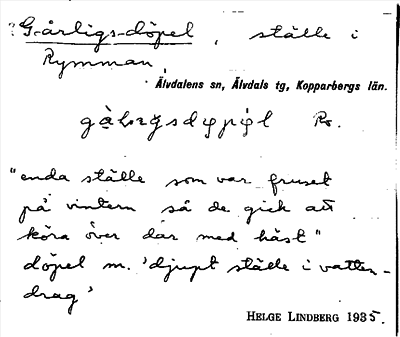 ?Gårligs-döpel, ställe i
Rymman,
Älvdalens sn, Älvdals tg, Kopparbergs län.
Ro.
"enda ställe som var fruset
på vintern så de gick att
köra över där med häst"
döpel m. 'djupt ställe i vatten-
drag'
HELGE LINDBERG 1935.